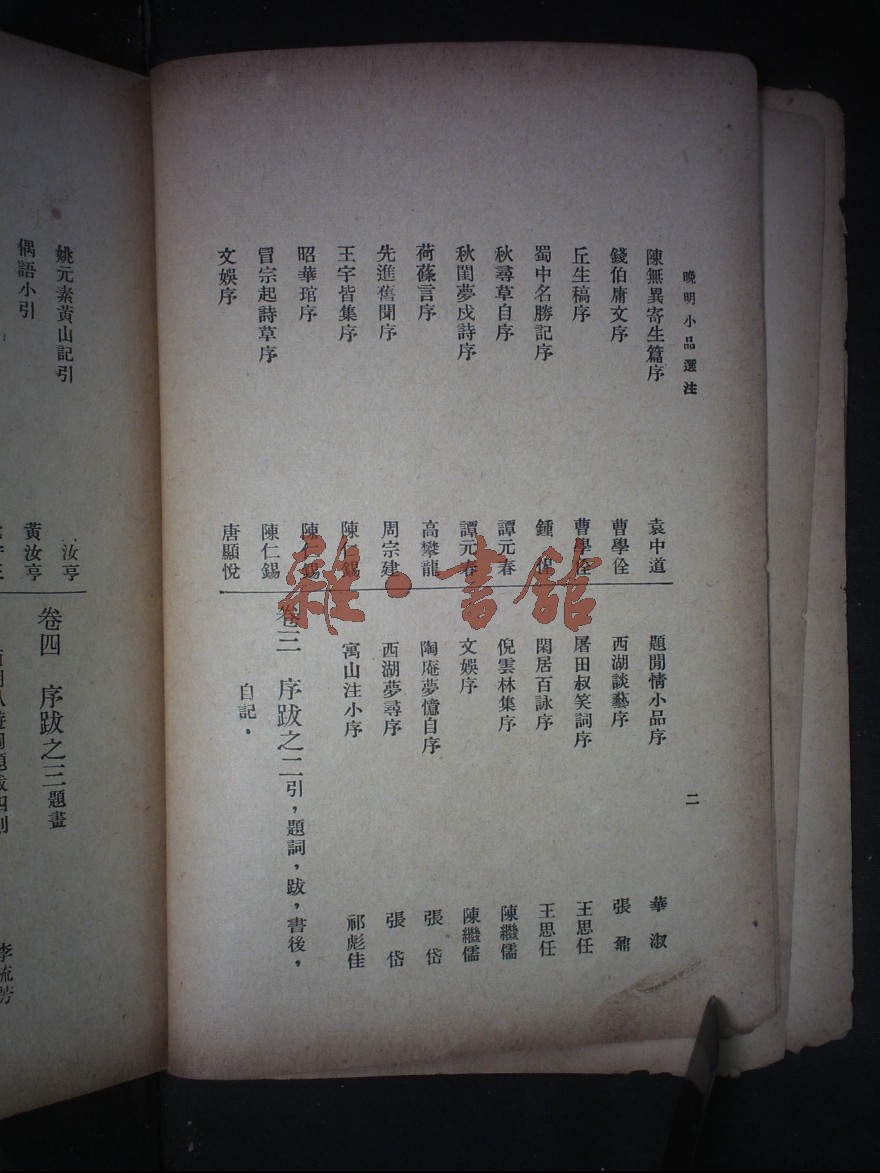 晚明小品選注
二
陳無異寄生篇序 袁中道
錢伯庸文序 曹學佺
丘生稿序 曹學佺
蜀中名勝記序 鍾惺
秋尋草自序 譚元春
秋閨夢戍詩序 譚元春
荷蓧言序 高攀龍
先進舊聞序 周宗建
王宇皆集序 陳仁錫
昭華琯序 陳仁錫
冒宗起詩草序 陳仁錫
文娛序 唐顯悅
題閒情小品序 華淑
西湖談藝序 張鼐
屠田叔笑詞序 王思任
閑居百詠序 王思任
倪雲林集序 陳繼儒
文娛序 陳繼儒
陶庵夢憶自序 張岱
西湖夢尋序 張岱
寓山注小序 祁彪佳
卷三 序跋之二引，題詞，跋，書後，
自記．
姚元素黃山記引 汝亨
偶語小引 黃汝亨
卷四 序跋之三題畫
李流芳
雜·書館